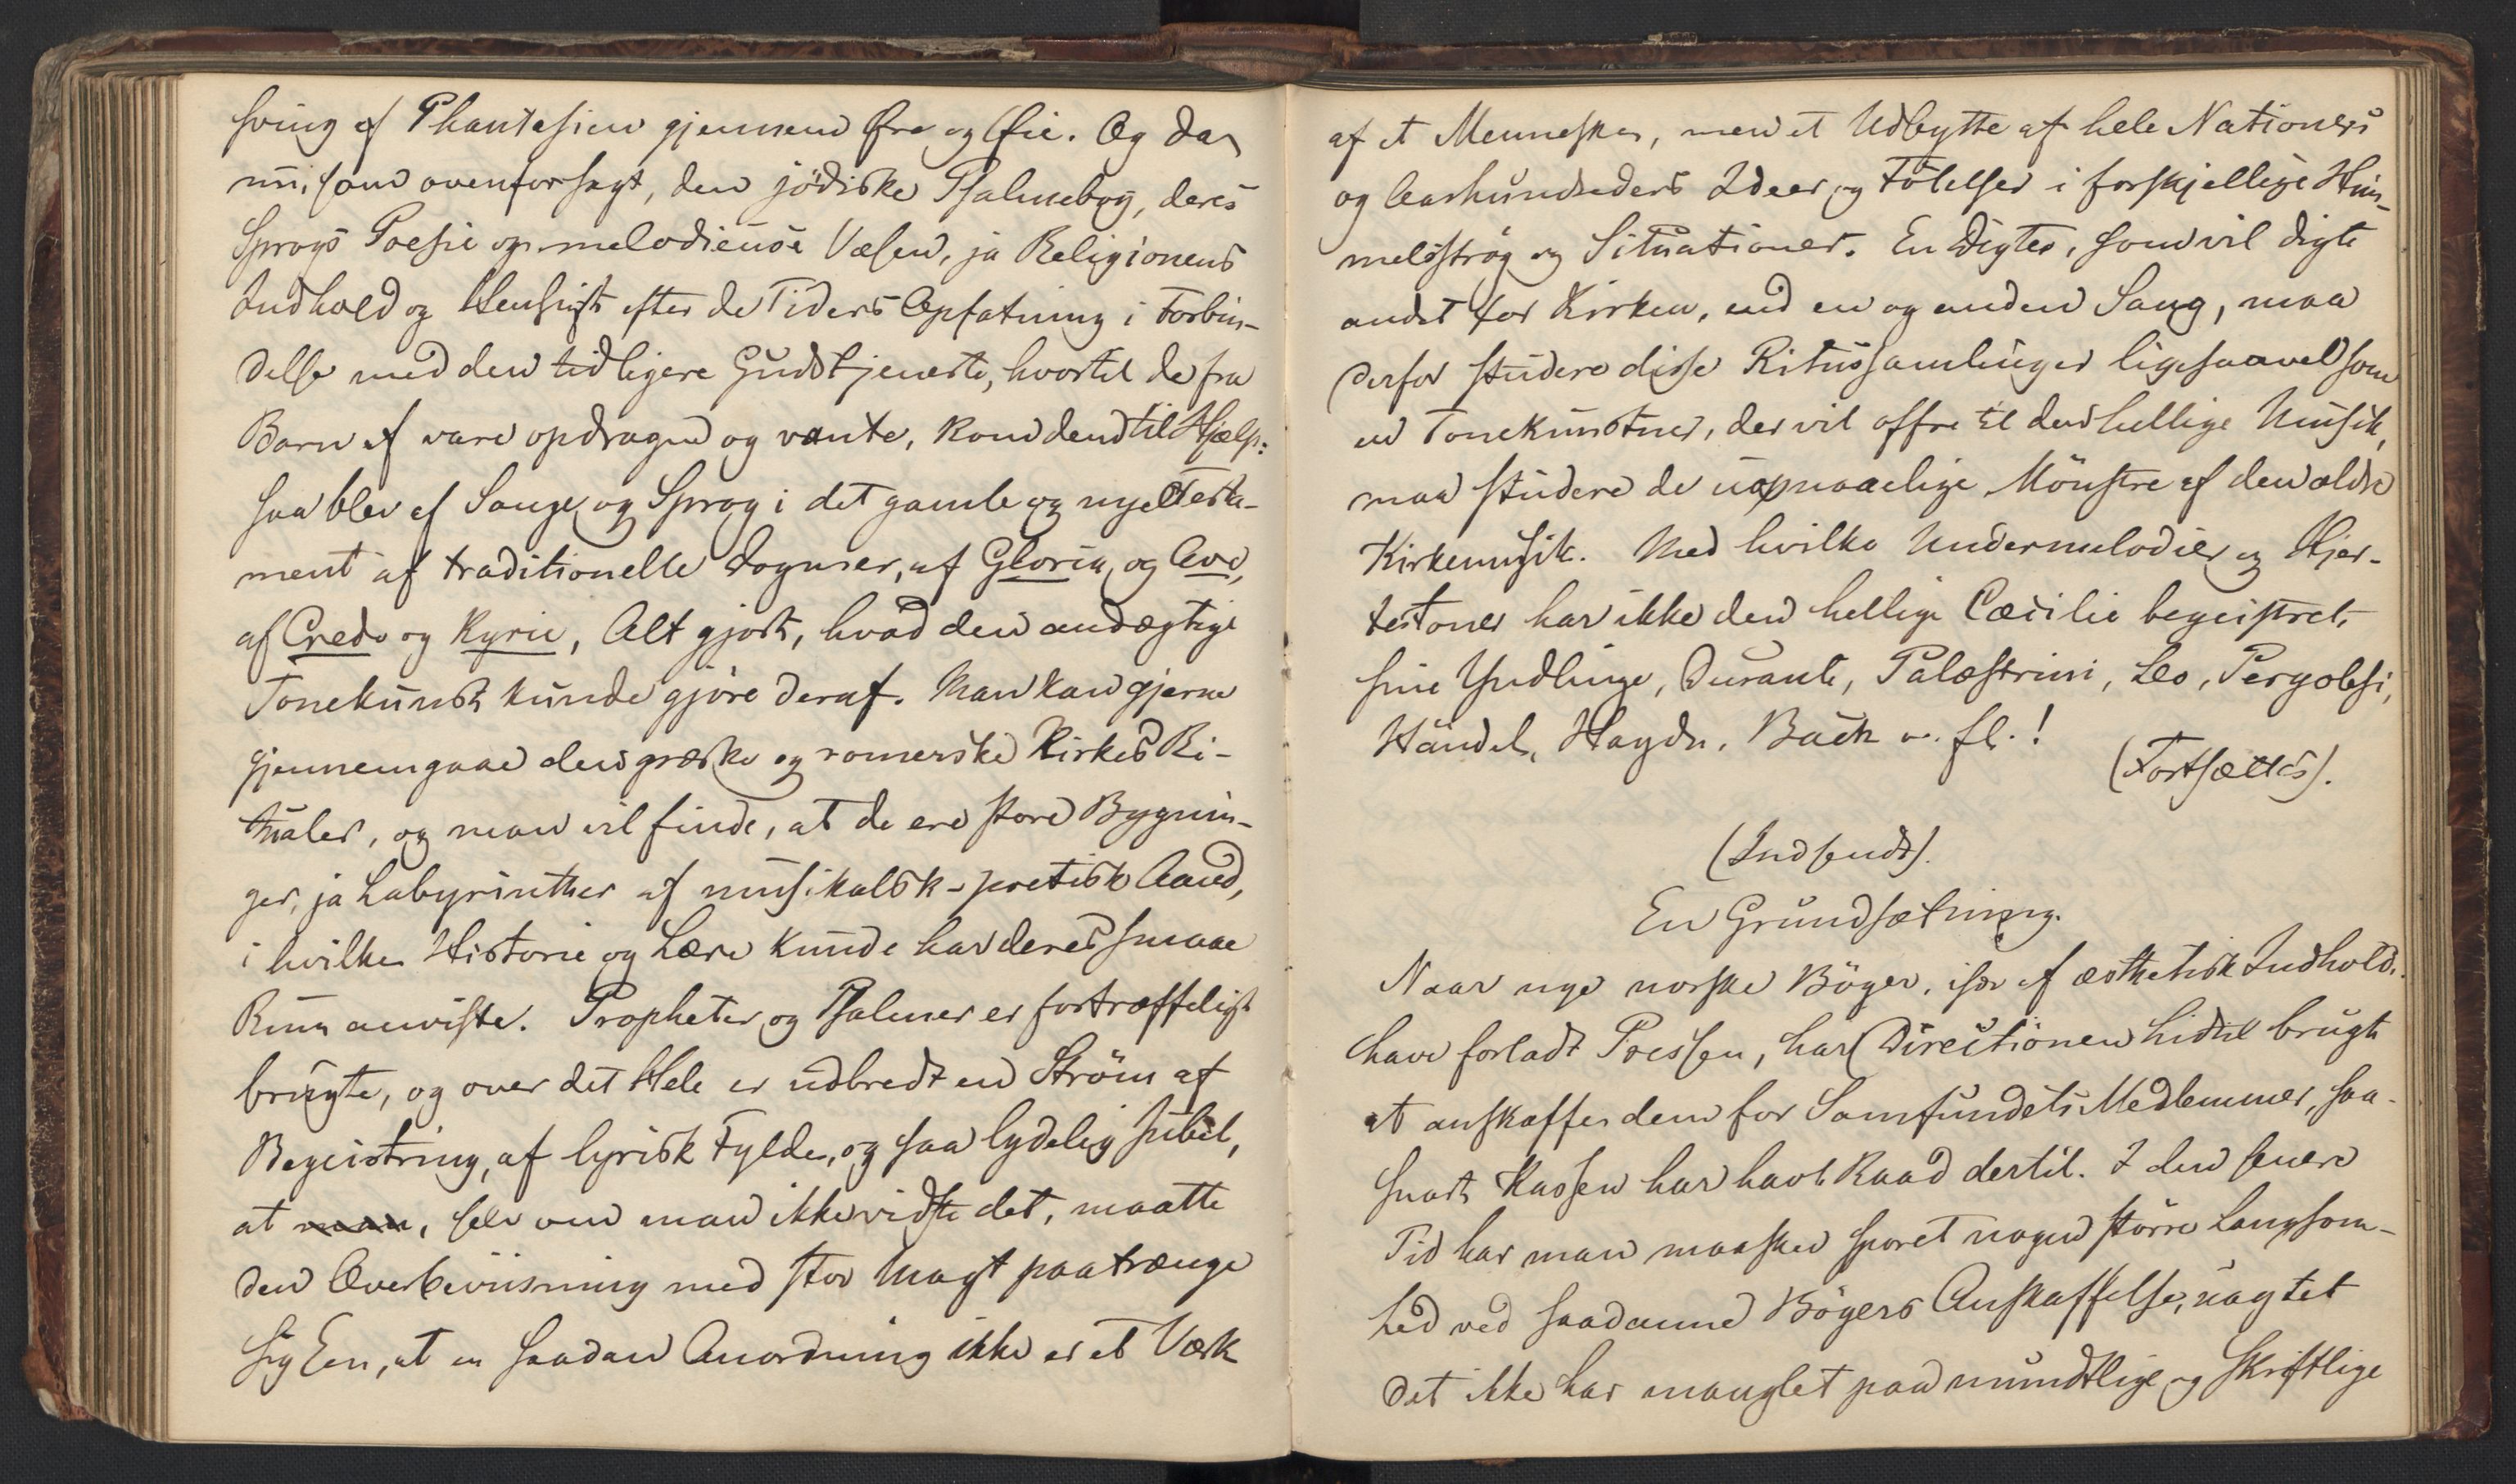 sving af Phantasien gjennem Øre og Øie. Og da
nu, som ovenfor sagt, den jødiske Psalmebog, deres
Sprogs Poesie og melodieuse Væsen, ja Religionens
Indhold og Hensigt efter de Tiders Opfatning i Forbin-
delse med den tidligere Gudstjeneste, hvortil de fra
Barn af vare opdragne og vante, kom dem til Hjælp:
saa blev af Sange og Sprog i det gamle og nye Testa-
ment af traditionelle Dogmer, af Gloria og Ave,
af Credo og Kyrie, Alt gjort, hvad den andægtige
Tonekunst kunde gjøre deraf. Man kan gjerne
gjennemgaae den græske og romerske Kirkes Ri-
tualer, og man vil finde, at de ere store Bygnin-
ger, ja Labyrinther af musikalsk-poetisk Aand,
i hvilke Historie og Lære kunde har deres smaae
Rum anviste. Propheter og Psalmer er fortræffeligt
brugte, og over det Hele er udbredt en Strøm af
Begeistring, af lyrisk Fylde, og saa lydelig Jubel,
at man, selv om man ikke vidste det, maatte
den Overbeviisning med stor Magt paatrænge
sig Een, at en saadan Anordning ikke er et Værk
af et Menneske, men et Udbytte af hele Nationers
og Aarhundreders Ideer og Følelser i forskjellige Him-
melstrøg og Situationer. En Digter, som vil digte
andet for Kirken, end en og anden Sang, maa
derfor studere disse Ritussamlinger ligesaavel som
en Tonekunstner, der vil offre til den hellige Musik,
maa studere de uopnaaelige Mönstre af den ældre
Kirkemusik. Med hvilke Undermelodier og Hjer-
tetoner har ikke den hellige Cæcilie begeistret
sine Yndlinge, Durante, Palæstrini, Leo, Pergolesi,
Händel, Haydn, Bach o. fl.!
(Fortsættes).
(Indsendt).
En Grundsætning.
Naar nye norske Böger, især af æsthetisk Indhold,
have forladt Pressen, har Directionen hidtil brugt
at anskaffe dem for Samfundets Medlemmer, saa-
snart Kassen har havt Raad dertil. I den senere
Tid har man maaskee sporet nogen større Langsom-
hed ved saadanne Bögers Anskaffelse, uagtet
det ikke har manglet paa mundtlige og skriftlige